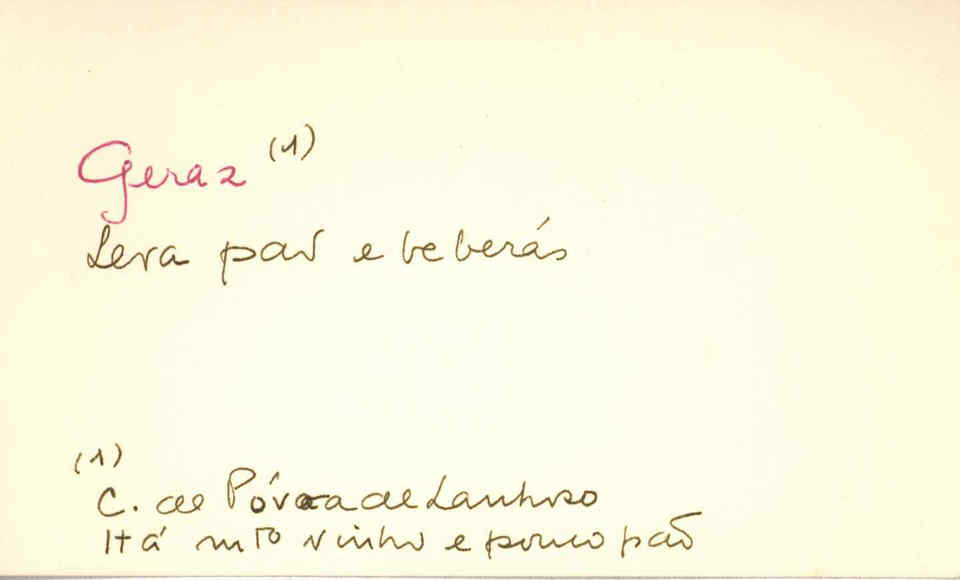 Geraz (1)
Leva pão e beberás
(1)
C. de Póvoa de Lanhoso
Há mto vinho e pouco pão